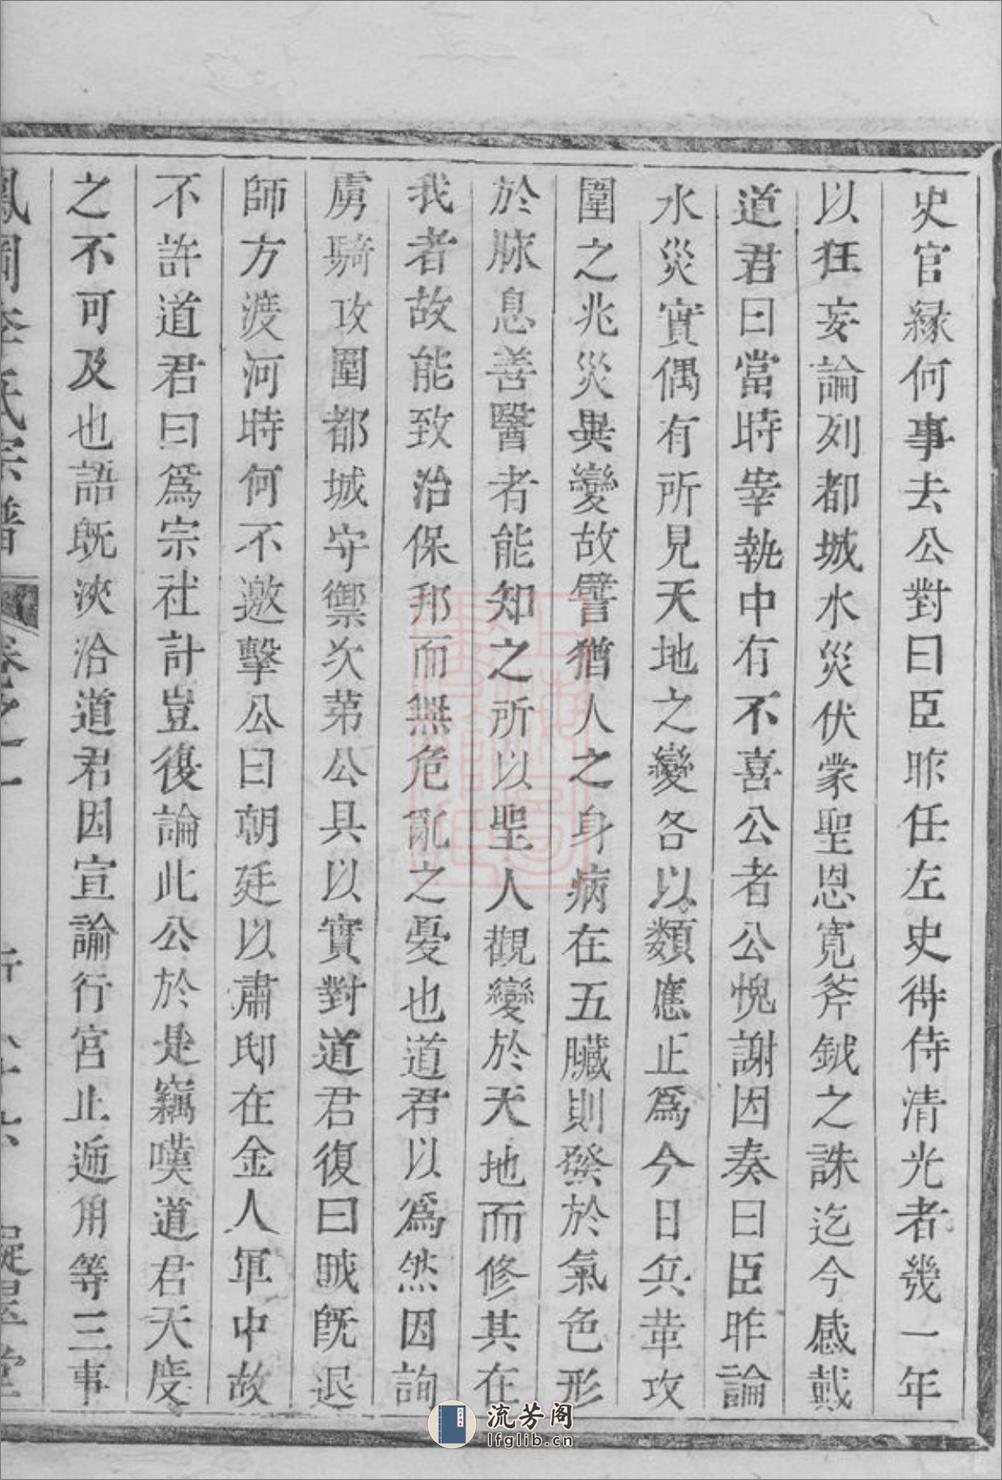 史官縁何事去公對曰臣昨任左史得侍清光者幾一年
以狂妄論列都城水災伏蒙聖恩寬斧鉞之誅迄今感戴
道君曰當時宰執中有不喜公者公愧謝因奏曰臣昨論
水災實偶有所見天地之變各以類應正爲今日兵革攻
圍之兆災異變故譬猶人之身病在五臟則發於氣色形
於脉息善醫者能知之所以聖人觀變於天地而修其在
我者故能致治保邦而無危亂之憂也道君以爲然因詢
虜騎攻圍都城守禦次第公具以實對道君復曰賊旣退
師方渡河時何不邀擊公曰朝廷以肅邸在金人軍中故
不許道君曰爲宗社計豈復論此公於是竊嘆道君天度
之不可及也語旣浹洽道君因宣論行宮止逓角等三事
鳳岡李氏宗譜 卷之一
流芳阁
lfglib.cn